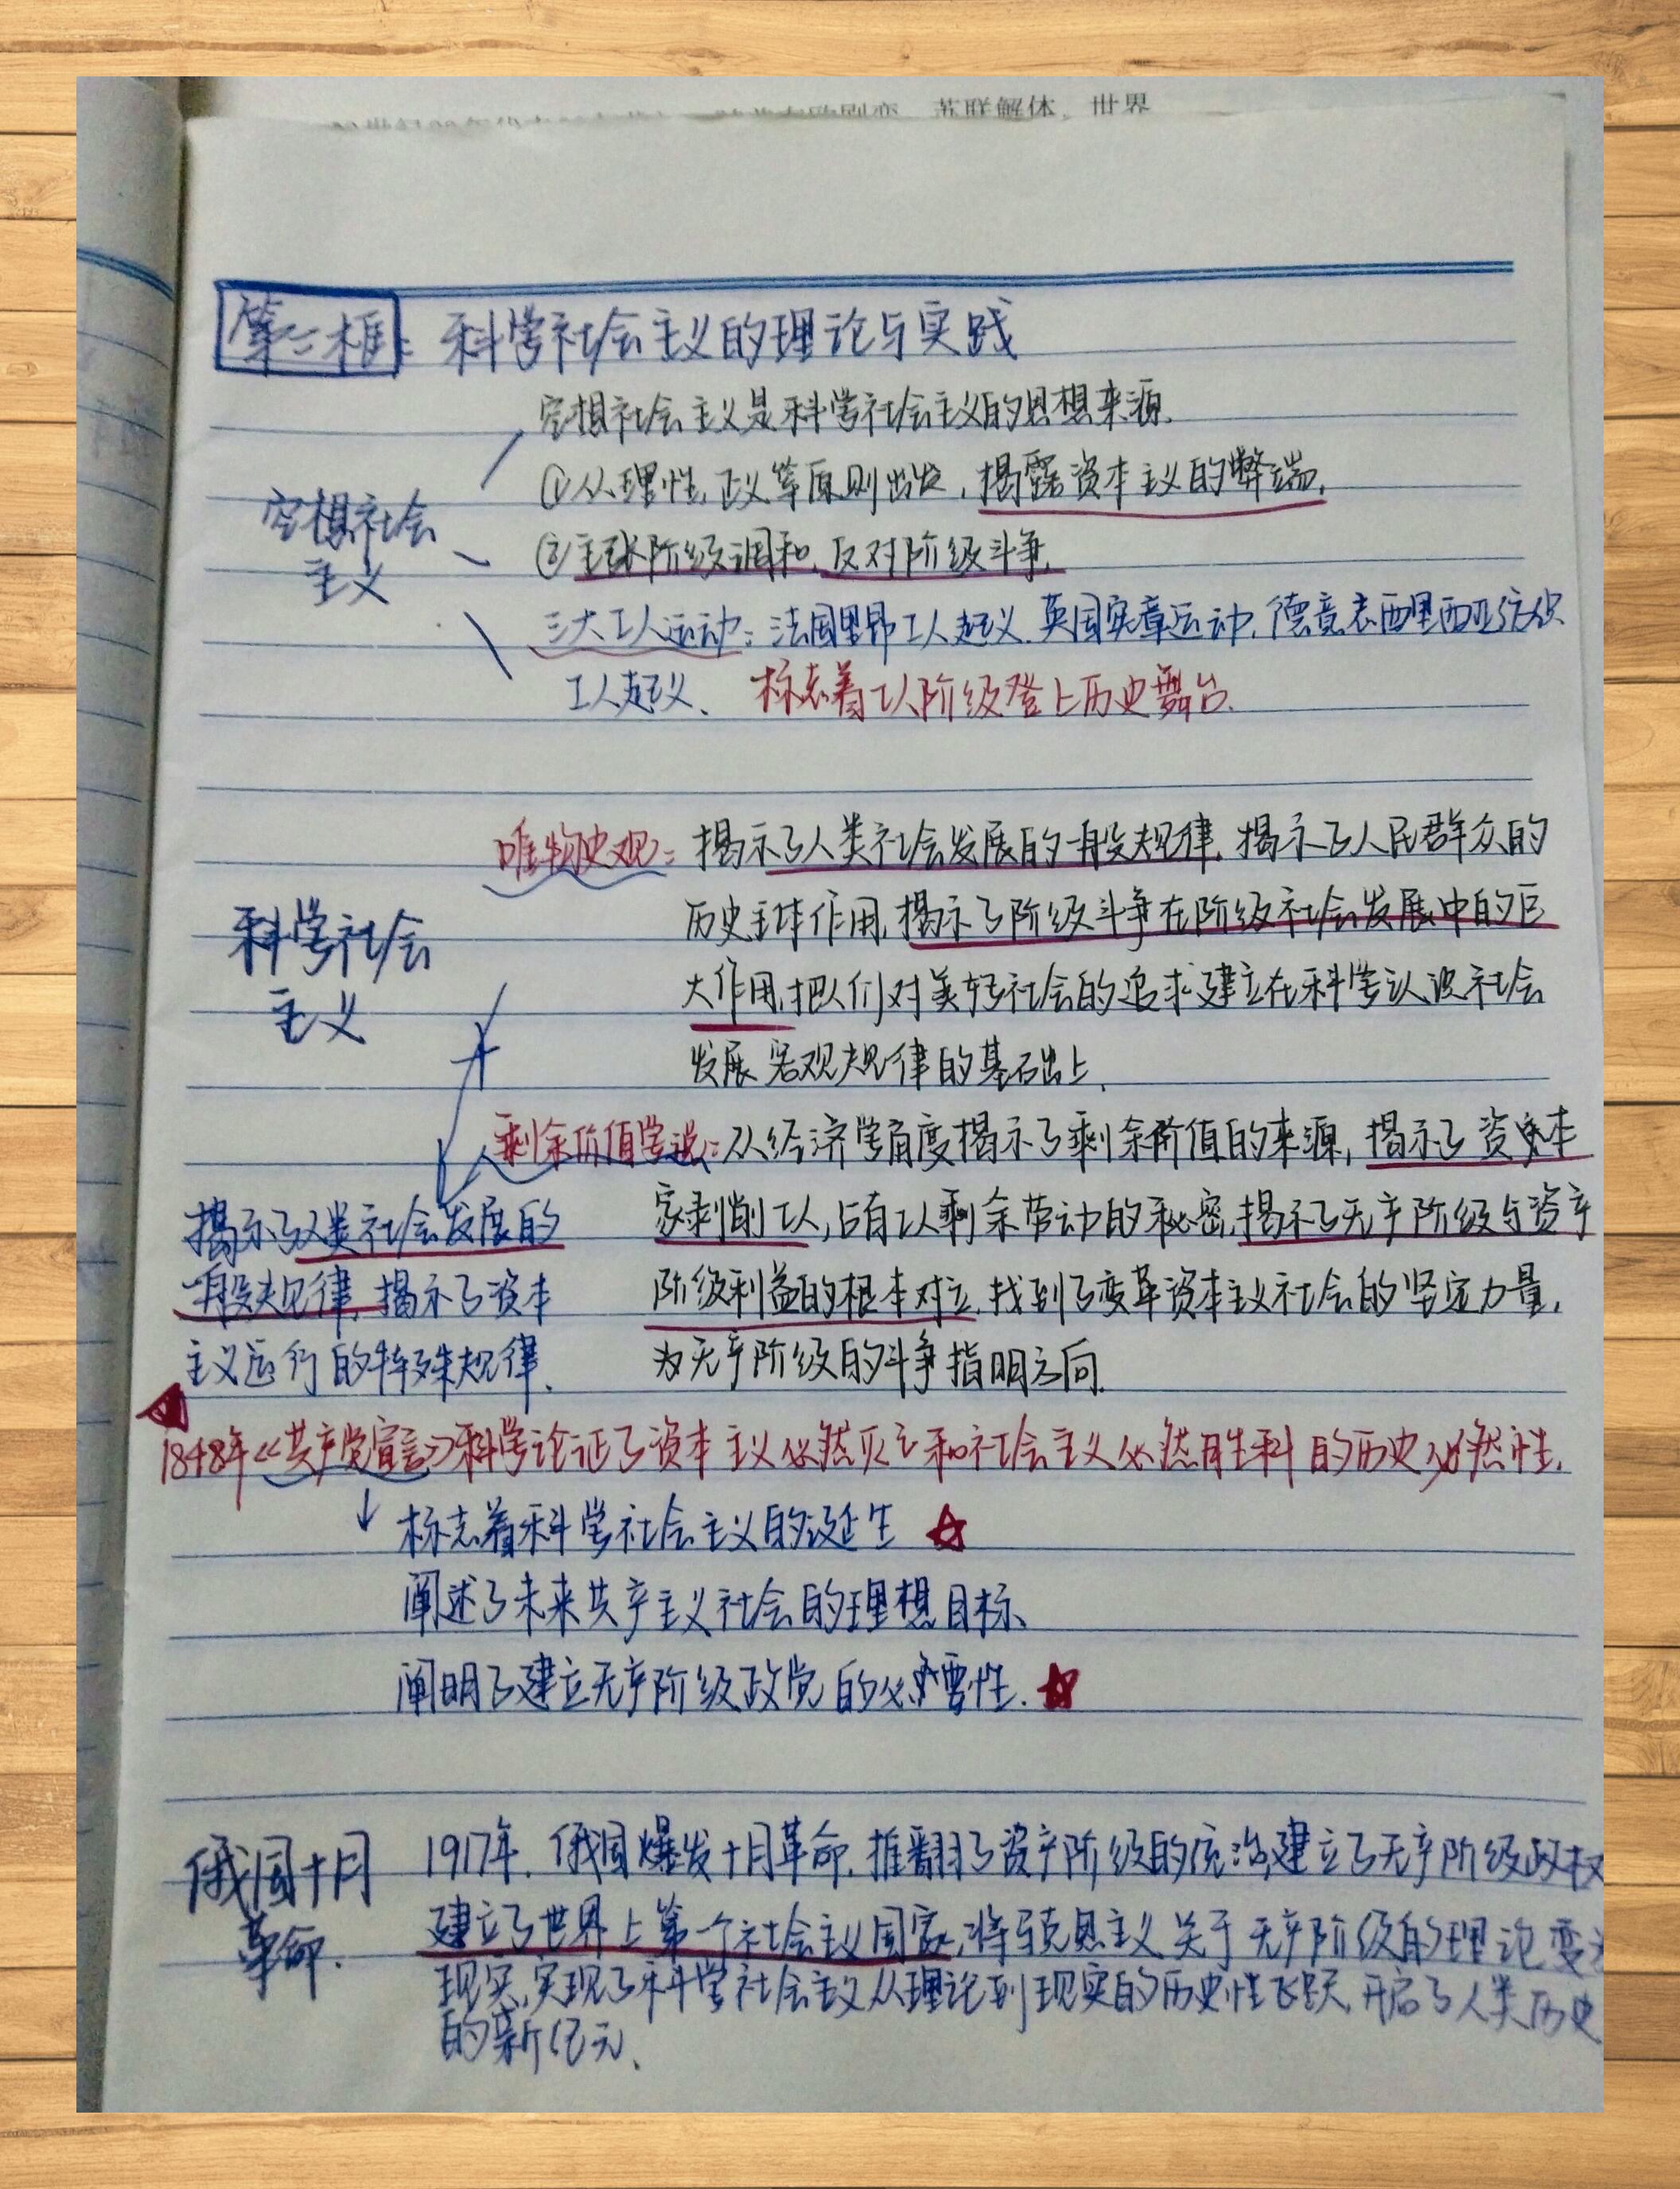 苏联解体，世界
第二框：科学社会主义的理论与实践
空想社会主义是科学社会主义的思想来源.
①从理性,正义等原则出发，揭露资本主义的弊端,
空想社会
主义
②主张阶级调和,反对阶级斗争,
三大工人运动：法国里昂工人起义.英国宪章运动,德意志西里西亚纺织
工人起义、标志着工人阶级登上历史舞台.
唯物史观：揭示了人类社会发展的一般规律,揭示了人民群众的
历史主体作用,揭示了阶级斗争在阶级社会发展中的巨
科学社会
主义
大作用,把人们对美好社会的追求建立在科学认识社会
发展客观规律的基础上.
剩余价值学说：从经济学角度揭示了剩余价值的来源，揭示了资本
家剥削工人,占有工人剩余劳动的秘密,揭示了无产阶级与资产
阶级利益的根本对立.找到了变革资本主义社会的坚定力量，
为无产阶级的斗争指明方向.
揭示了人类社会发展的
一般规律,揭示了资本
主义运行的特殊规律、
1848年《共产党宣言》科学论证了资本主义必然灭亡和社会主义必然胜利的历史必然性.
标志着科学社会主义的诞生
阐述了未来共产主义社会的理想目标、
阐明了建立无产阶级政党的必要性.
俄国十月
革命.
1917年.俄国爆发十月革命.推翻了资产阶级的统治,建立了无产阶级政权
建立了世界上第一个社会主义国家,将马克思主义关于无产阶级的理论变
现实,实现了科学社会主义从理论到现实的历史性飞跃,开启了人类历史
的新亿元、